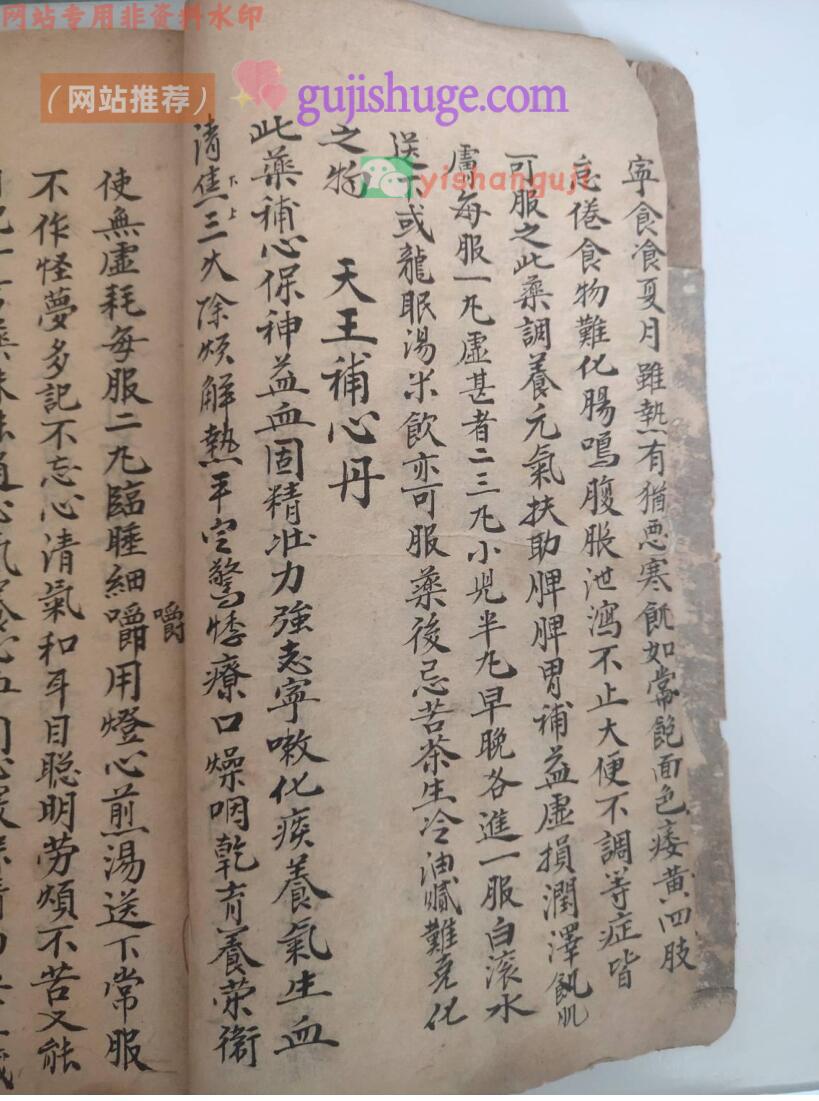 网站专用非资料水印
（网站推荐）
gujishuge.com
yishanguji
寧食飡夏月雖熱有猶惡寒飢如常飽面色痿黃四肢
怠倦食物難化腸鳴腹脹泄瀉不止大便不調等症皆
可服之此藥調養元氣扶助脾脾胃補益虛損潤澤飢肌
膚每服一九虛甚者二三九小児半九早晚各進一服白滚水
送下或龍眼湯米飲亦可服藥後忌苦茶生冷油膩難克化
之物 天王補心丹
此藥補心保神益血固精壯力強志寧嗽化痰養氣生血
清焦下上三火除煩解熱平定驚悸療口燥咽乾育養荣衛
使無虛耗每服二九臨睡細嚼嚼用燈心煎湯送下常服
不作怪夢多記不忘心清氣和耳目聡明劳煩不苦又能